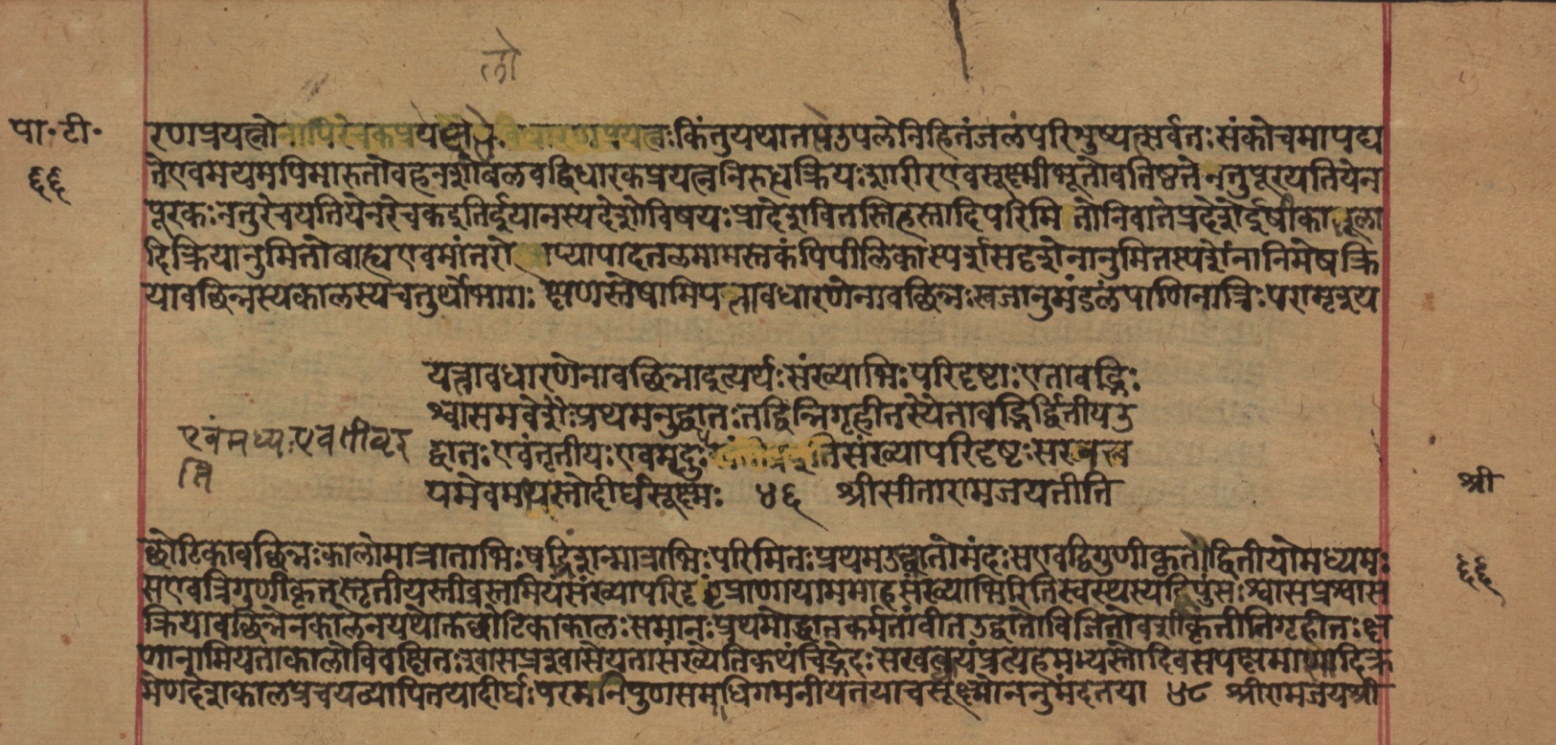 लो
पा॰ टी॰
६६
रणप्रयत्नोनापिरेचकप्रयत्नो विधारणप्रयत्नः किंतुयथातप्तउपलेनिहितंजलंपरिशुष्यत्सर्वतःसंकोचमापद्य
तेएवमयमपिमारुतोवहनशीलोबलवद्विधारकप्रयत्ननिरुद्धक्रियःशरीरएवसूक्ष्मीभूतोवतिष्ठतेनतुपूरयतियेन
पूरकःनतुरेचयतियेनरेचकइतिर्इयानस्यदेशोविषयःप्रादेशवितस्तिहस्तादिपरिमि तोनिवातेप्रदेशेर्इषीकातूला
दिक्रियानुमितोबाह्यएवमांतरो प्यापादतलमामस्तकंपिपीलिकास्पर्शसदृशेनानुमितस्पर्शेनानिमेषक्रि
यावछिन्नस्यकालस्यचतुर्थोभागः क्षणस्तेषामियत्तावधारणेनावछिन्नःस्वजानुमंडलंपाणिनात्रिःपरामृश्य
यत्तावधारणेनावछिन्नाइत्यर्थःसंख्याभिःपरिदृष्टाःएतावद्भिः
श्वासप्रवेशैःप्रथमनुद्घातःतद्विन्निगृहीतस्येतावद्भिर्द्वितीयउ
द्घातःएवंतृतीयःएवमृदुः इतिसंख्यापरिदृष्टःसखल्व
यमेवमभ्यस्तोदीर्घसूक्ष्मः ४६ श्रीसीतारामजयतीति
एवंमध्यःएवंतीव्रइ
ति
छोटिकावछिन्नःकालोमात्राताभिःषट्त्रिंशन्मात्राभिःपरिमितःप्रथमउद्घातोमंदःसएवद्विगुणीकृतोद्वितीयोमध्यमः
सएवत्रिगुणीकृतस्तृतीयस्तीव्रस्तमिमंसंख्यापरिदृष्टंप्राणायाममाहसंख्याभिरितिस्वस्थस्यहिपुंसःश्वासप्रश्वास
क्रियावछिन्नेनकालेनयथोक्तछोटिकाकालःसमानःप्रथमोद्घातकर्मतांनीतउद्घातोविजितोवशीकृतोनिगृहीतःक्ष
णानामियत्ताकालोविवक्षितःश्वासप्रश्वासेयत्तासंख्येतिकथंचिद्भेदःसखल्वयंप्रत्यहमभ्यस्तोदिवसपक्षमासादिक्र
मेणदेशकालप्रचयव्यापितयादीर्घः परमनिपुणसमधिगमनीयतयाचसूक्ष्मोनतुमंदतया ४८ श्रीरामजयश्री
श्री
६६